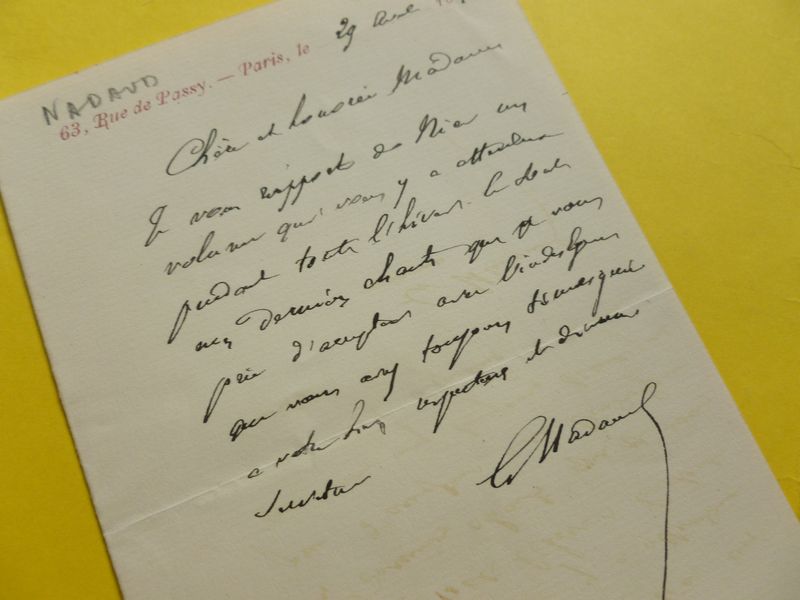 NADAUD
63, Rue de Passy. — Paris, le 29 Avril
Chère et honorée Madame
Je vous rapporte de Nice un
volume qui vous y a attendue
pendant tout l'hiver. Ce sont
mes derniers chants que je vous
prie d'accepter avec l'indulgence
que vous avez toujours témoignée
à votre bien respectueux et dévoué
serviteur
G Nadaud